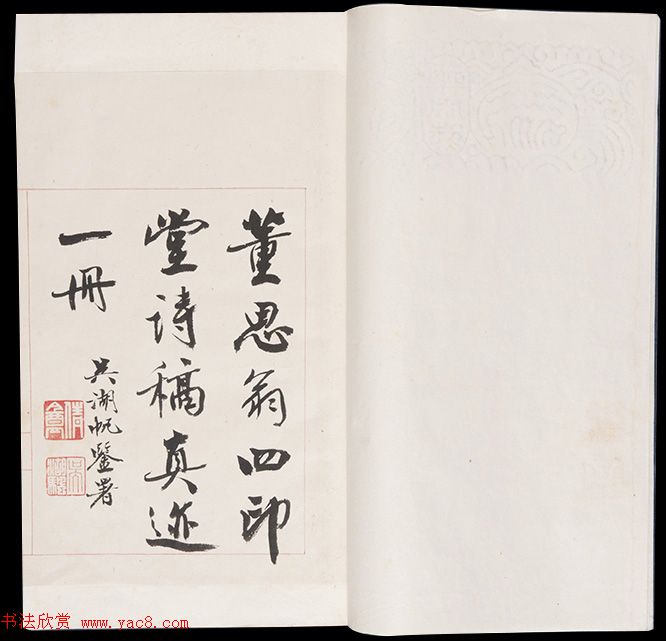 董思翁四印
堂诗稿真迹
一册
吴湖帆鉴署
书法欣赏 www.yac8.com